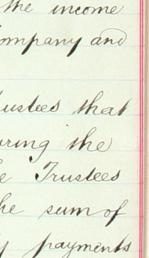 the income
ompany and
rustees that
uring the
e Trustees
he sum of
y payments